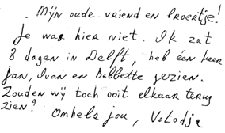 Mijn oude vriend en broertje!
Je was hier niet. Ik zat
8 dagen in Delft, heb een keer
Jan, Ivan en Babette gezien.
Zouden wij toch ooit elkaar terug
zien?
Omhels jou, Volodje